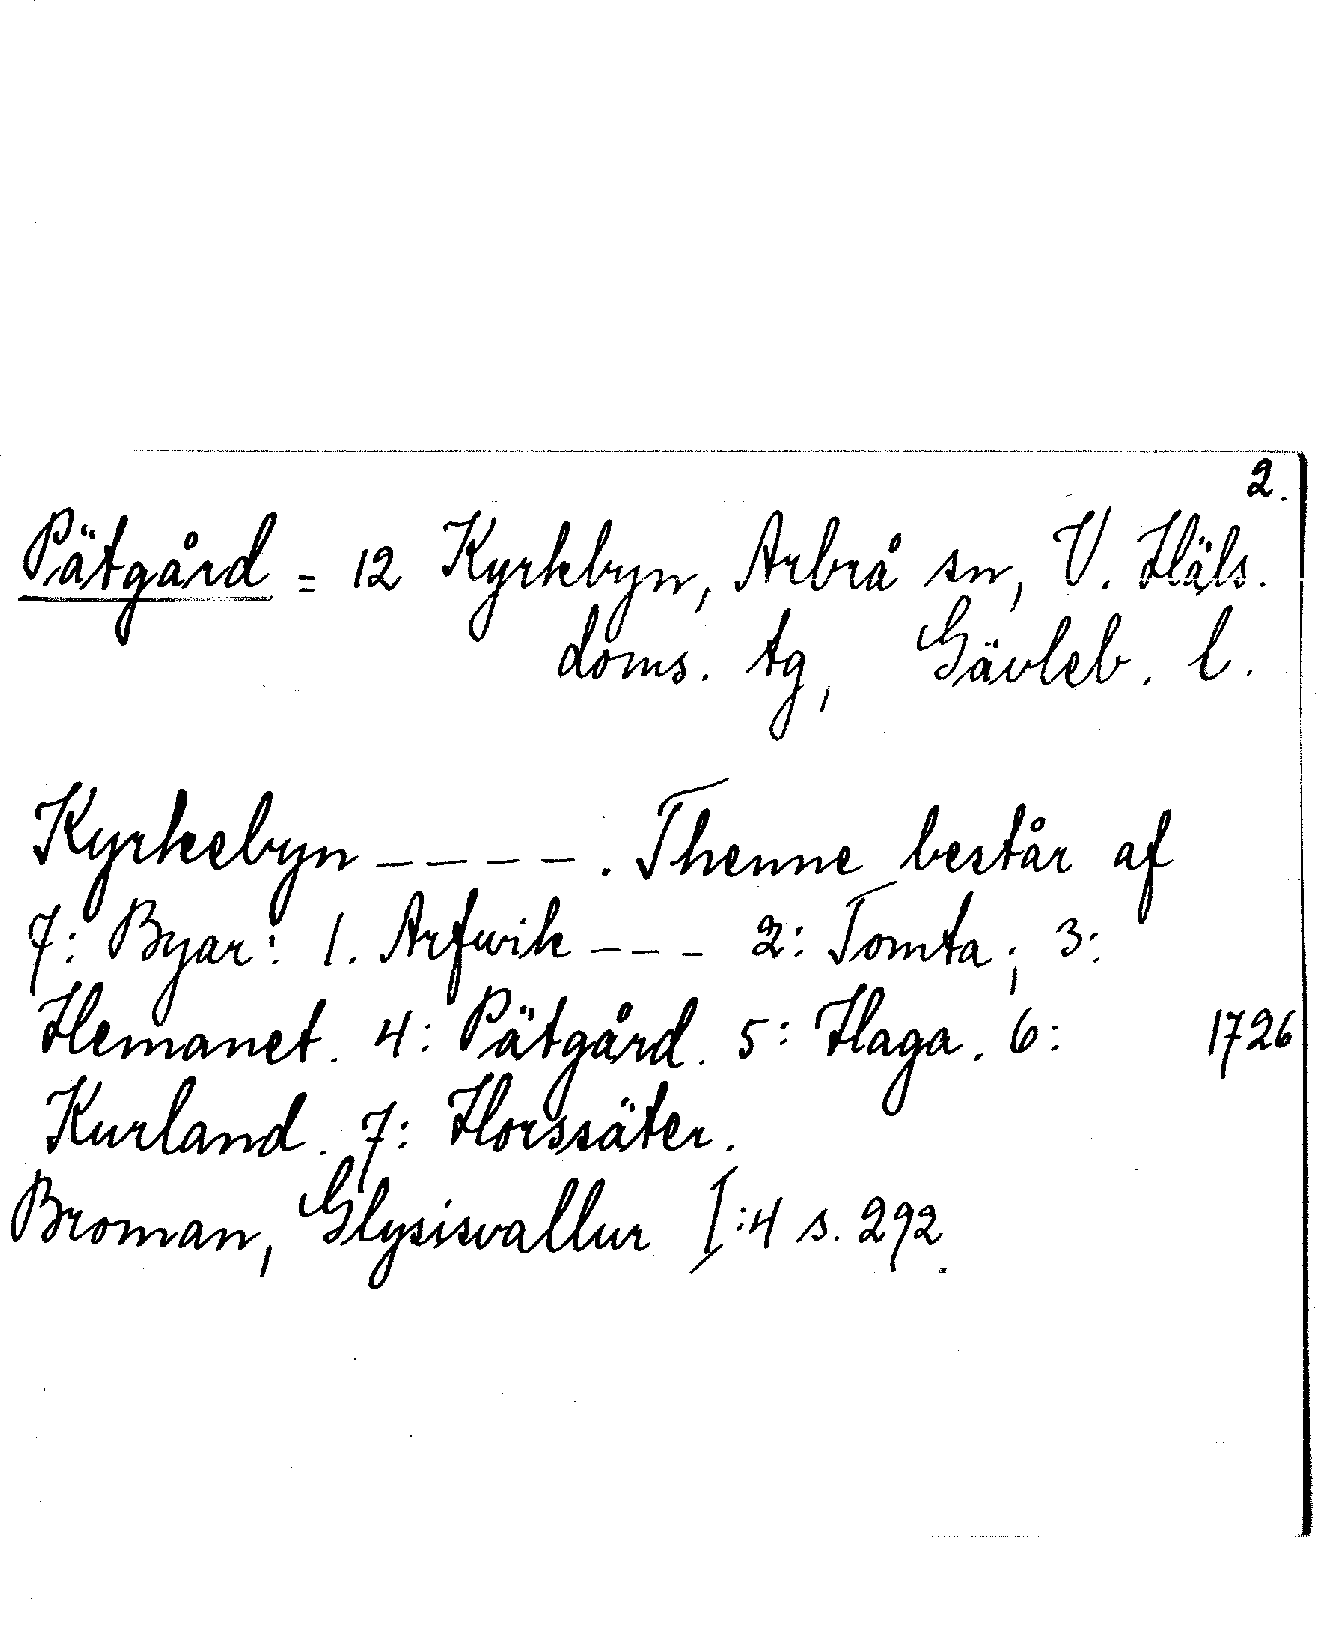 2.
Pätgård = 12 Kyrkbyn, Arbrå sn, V. Häls.
doms. tg, Gävleb. l.
Kyrkebyn _ _ _ _ _. Thenne består af
7: Byar: 1. Arfwik _ _ _ 2: Tomta; 3:
Hemanet. 4: Pätgård. 5: Haga. 6: 1726
Kurland. 7: Horssäter.
Broman, Glysisvallur I:4 s. 292.